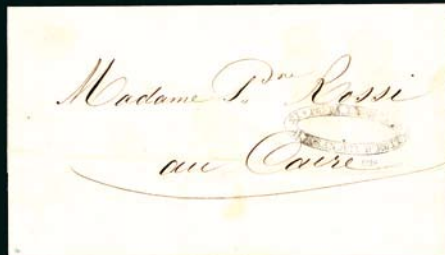 Madame P.ne Rossi
au Caire